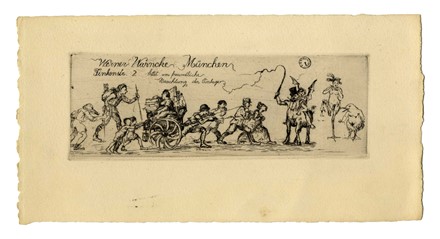 Werner Warncke, München
Finkenstr. 2 bittet um freundliche
Beachtung der Einlage